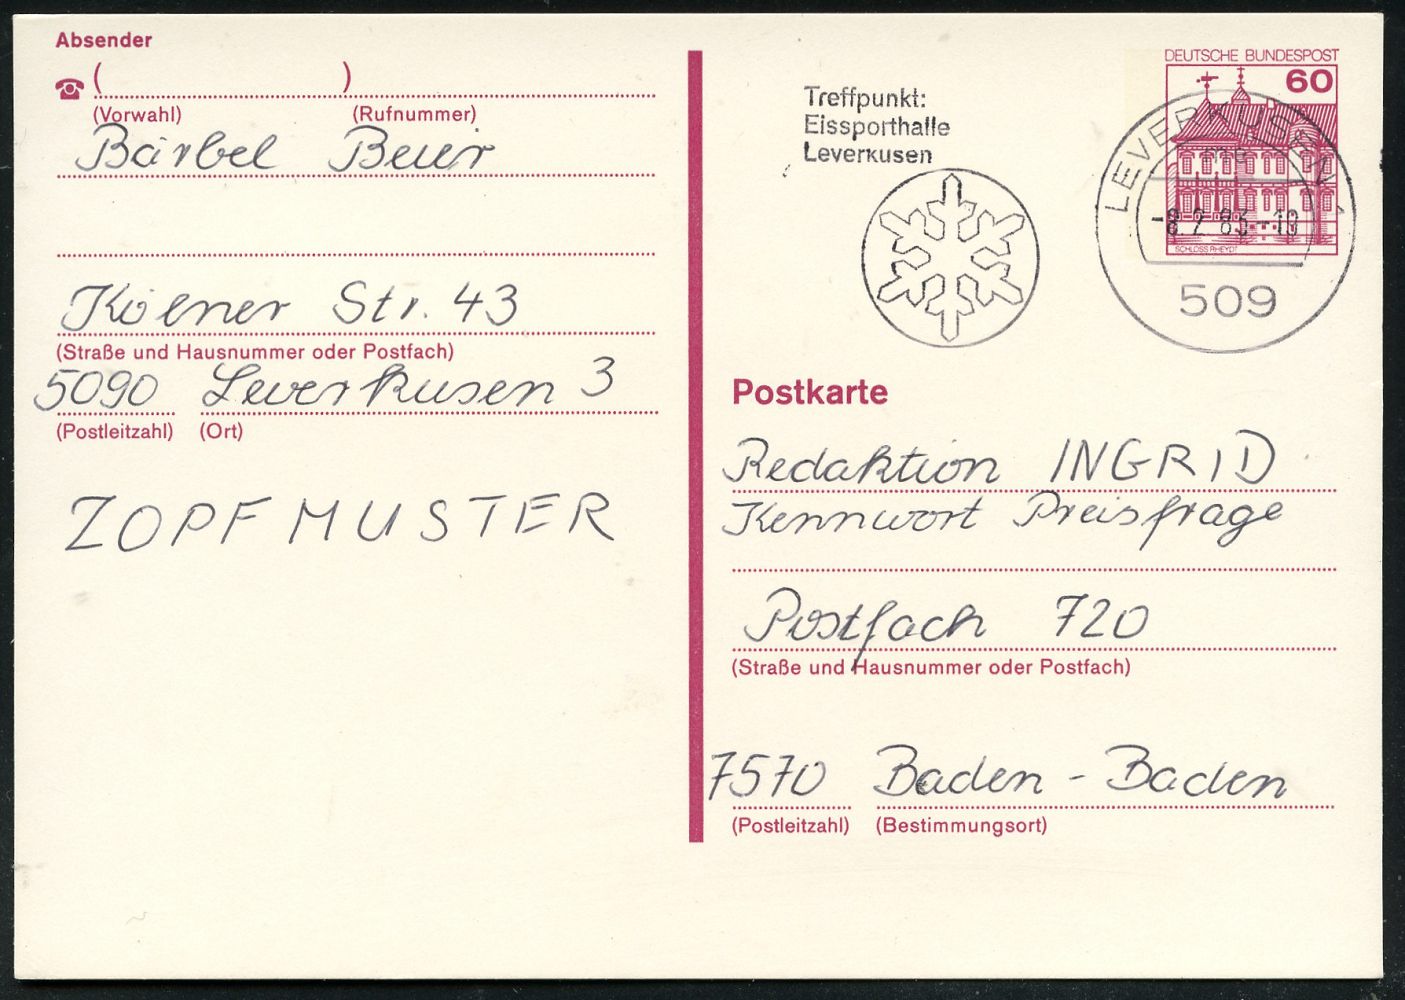 Absender
( )
(Vorwahl) (Rufnummer)
Bärbel Beier
Kölner Str. 43
(Straße und Hausnummer oder Postfach)
5090 Leverkusen 3
(Postleitzahl) (Ort)
ZOPFMUSTER
Treffpunkt:
Eissporthalle
Leverkusen
DEUTSCHE BUNDESPOST
60
SCHLOSS RHEYDT
LEVERKUSEN 1
mc
-8.2.83-19
509
Postkarte
Redaktion INGRID
Kennwort Preisfrage
Postfach 720
(Straße und Hausnummer oder Postfach)
7570 Baden-Baden
(Postleitzahl) (Bestimmungsort)